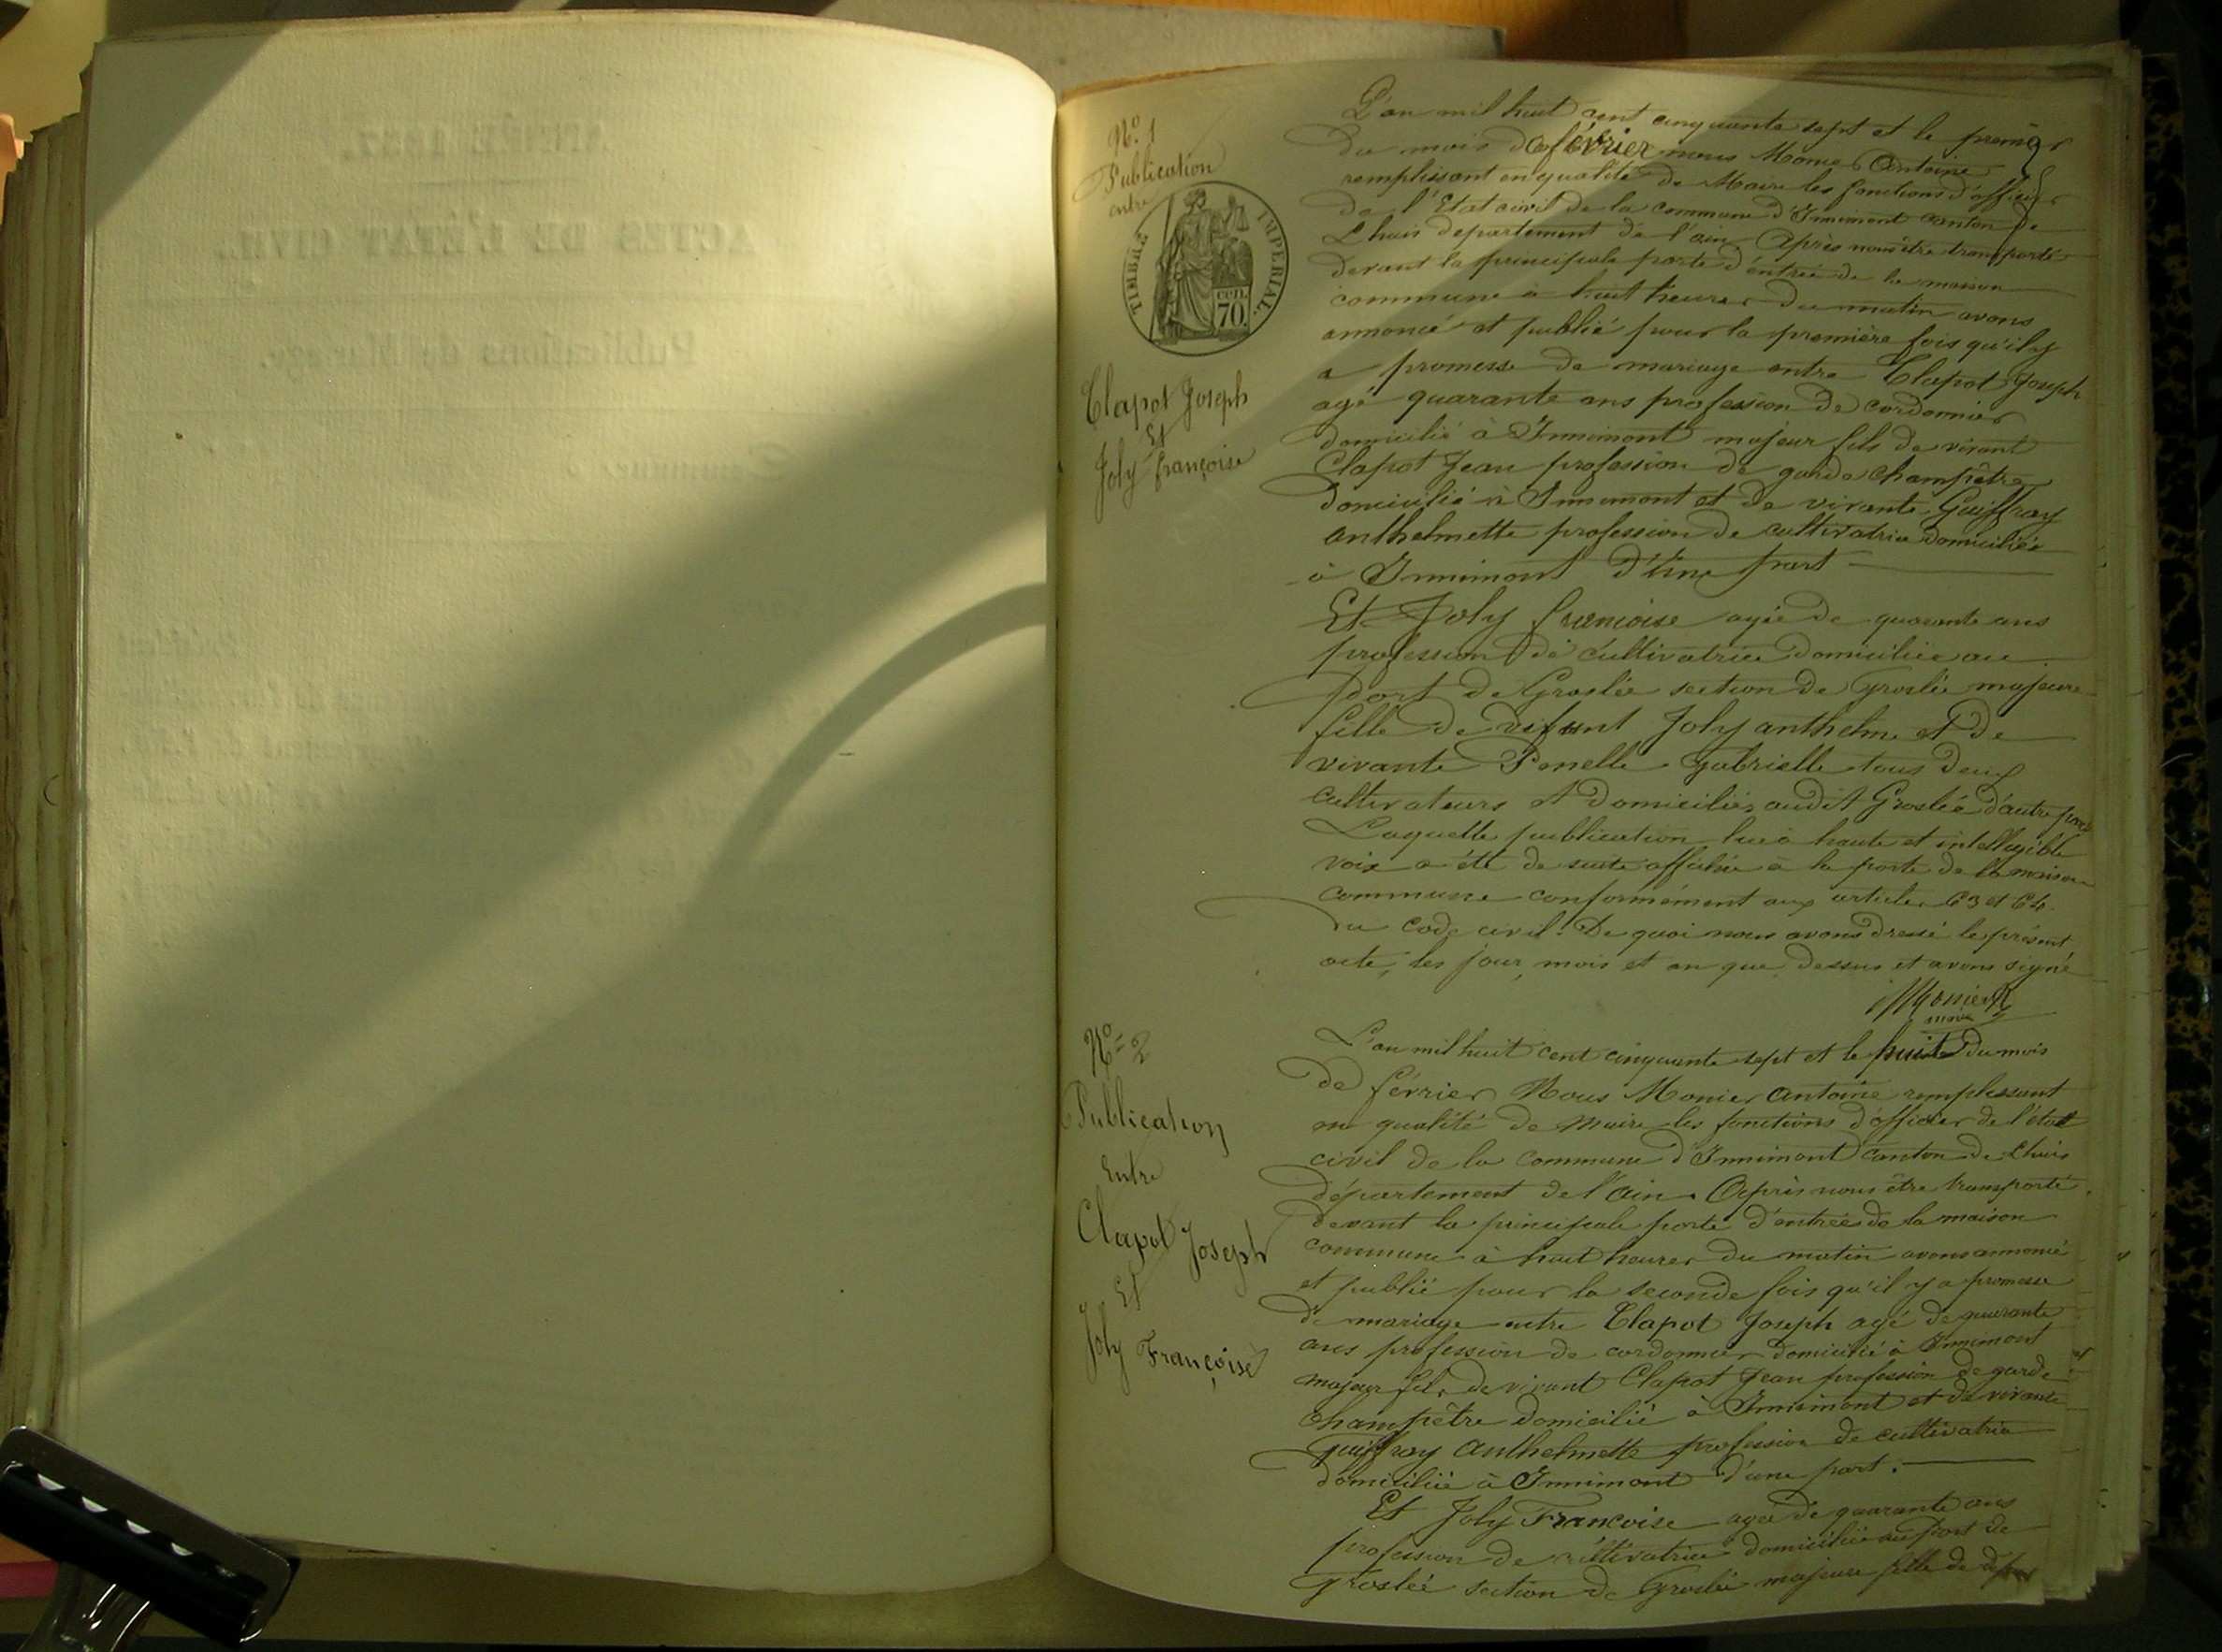 ANNÉE 1857.
ACTES DE L'ÉTAT CIVIL.
Publications de Mariage.
No. 1
Publication
entre
TIMBRE IMPERIAL.
cen.
70.
Clapot Joseph
Et
Joly françoise
L'an mil huit cent cinquante sept et le premier
du mois de février nous Monier Antoine
remplissant en qualité de Maire les fonctions d'officier
de l'Etat civil de la commune d'Innimont canton de
Lhuis departement de l'ain. Après nous être transporté
devant la principale porte d'entrée de la maison
commune à huit heures du matin avons
annoncé et publié pour la première fois qu'il y
a promesse de mariage entre Clapot Joseph
agé quarante ans profession de cordonnier
domicilié à Innimont majeur fils de vivant
Clapot Jean profession de garde champêtre
domicilié à Innimont et de vivante Guiffray
anthelmette profession de cultivatrice domiciliée
à Innimont d'une part
Et Joly françoise agée de quarante ans
profession de cultivatrice domiciliée au
port de Groslée section de Groslée majeure
fille de défunt Joly anthelme et de
vivante Penelle Gabrielle tous deux
cultivateurs et domiciliés audit Groslée d'autre part
Laquelle publication lue à haute et intelligible
voix a été de suite affichée à la porte de la maison
commune conformément aux articles 63 et 64
du code civil. De quoi nous avons dressé le présent
acte, les jour, mois et an que dessus et avons signé
Monier
maire
No = 2
Publication
Entre
Clapot Joseph
Et
Joly Françoise
L'an mil huit cent cinquante sept et le huit du mois
de février Nous Monier Antoine remplissant
en qualité de Maire les fonctions d'officier de l'état
civil de la commune d'Innimont canton de Lhuis
département de l'ain. Après nous être transporté
devant la principale porte d'entrée de la maison
commune à huit heures du matin avons annoncé
et publié pour la seconde fois qu'il y a promesse
de mariage entre Clapot Joseph agé de quarante
ans profession de cordonnier domicilié à Innimont
majeur fils de vivant Clapot Jean profession de garde
champêtre domicilié à Innimont et de vivante
Guiffray Anthelmette profession de cultivatrice
domiciliée à Innimont d'une part.
Et Joly Françoise agée de quarante ans
profession de cultivatrice domiciliée au port de
Groslée section de Groslée majeure fille de